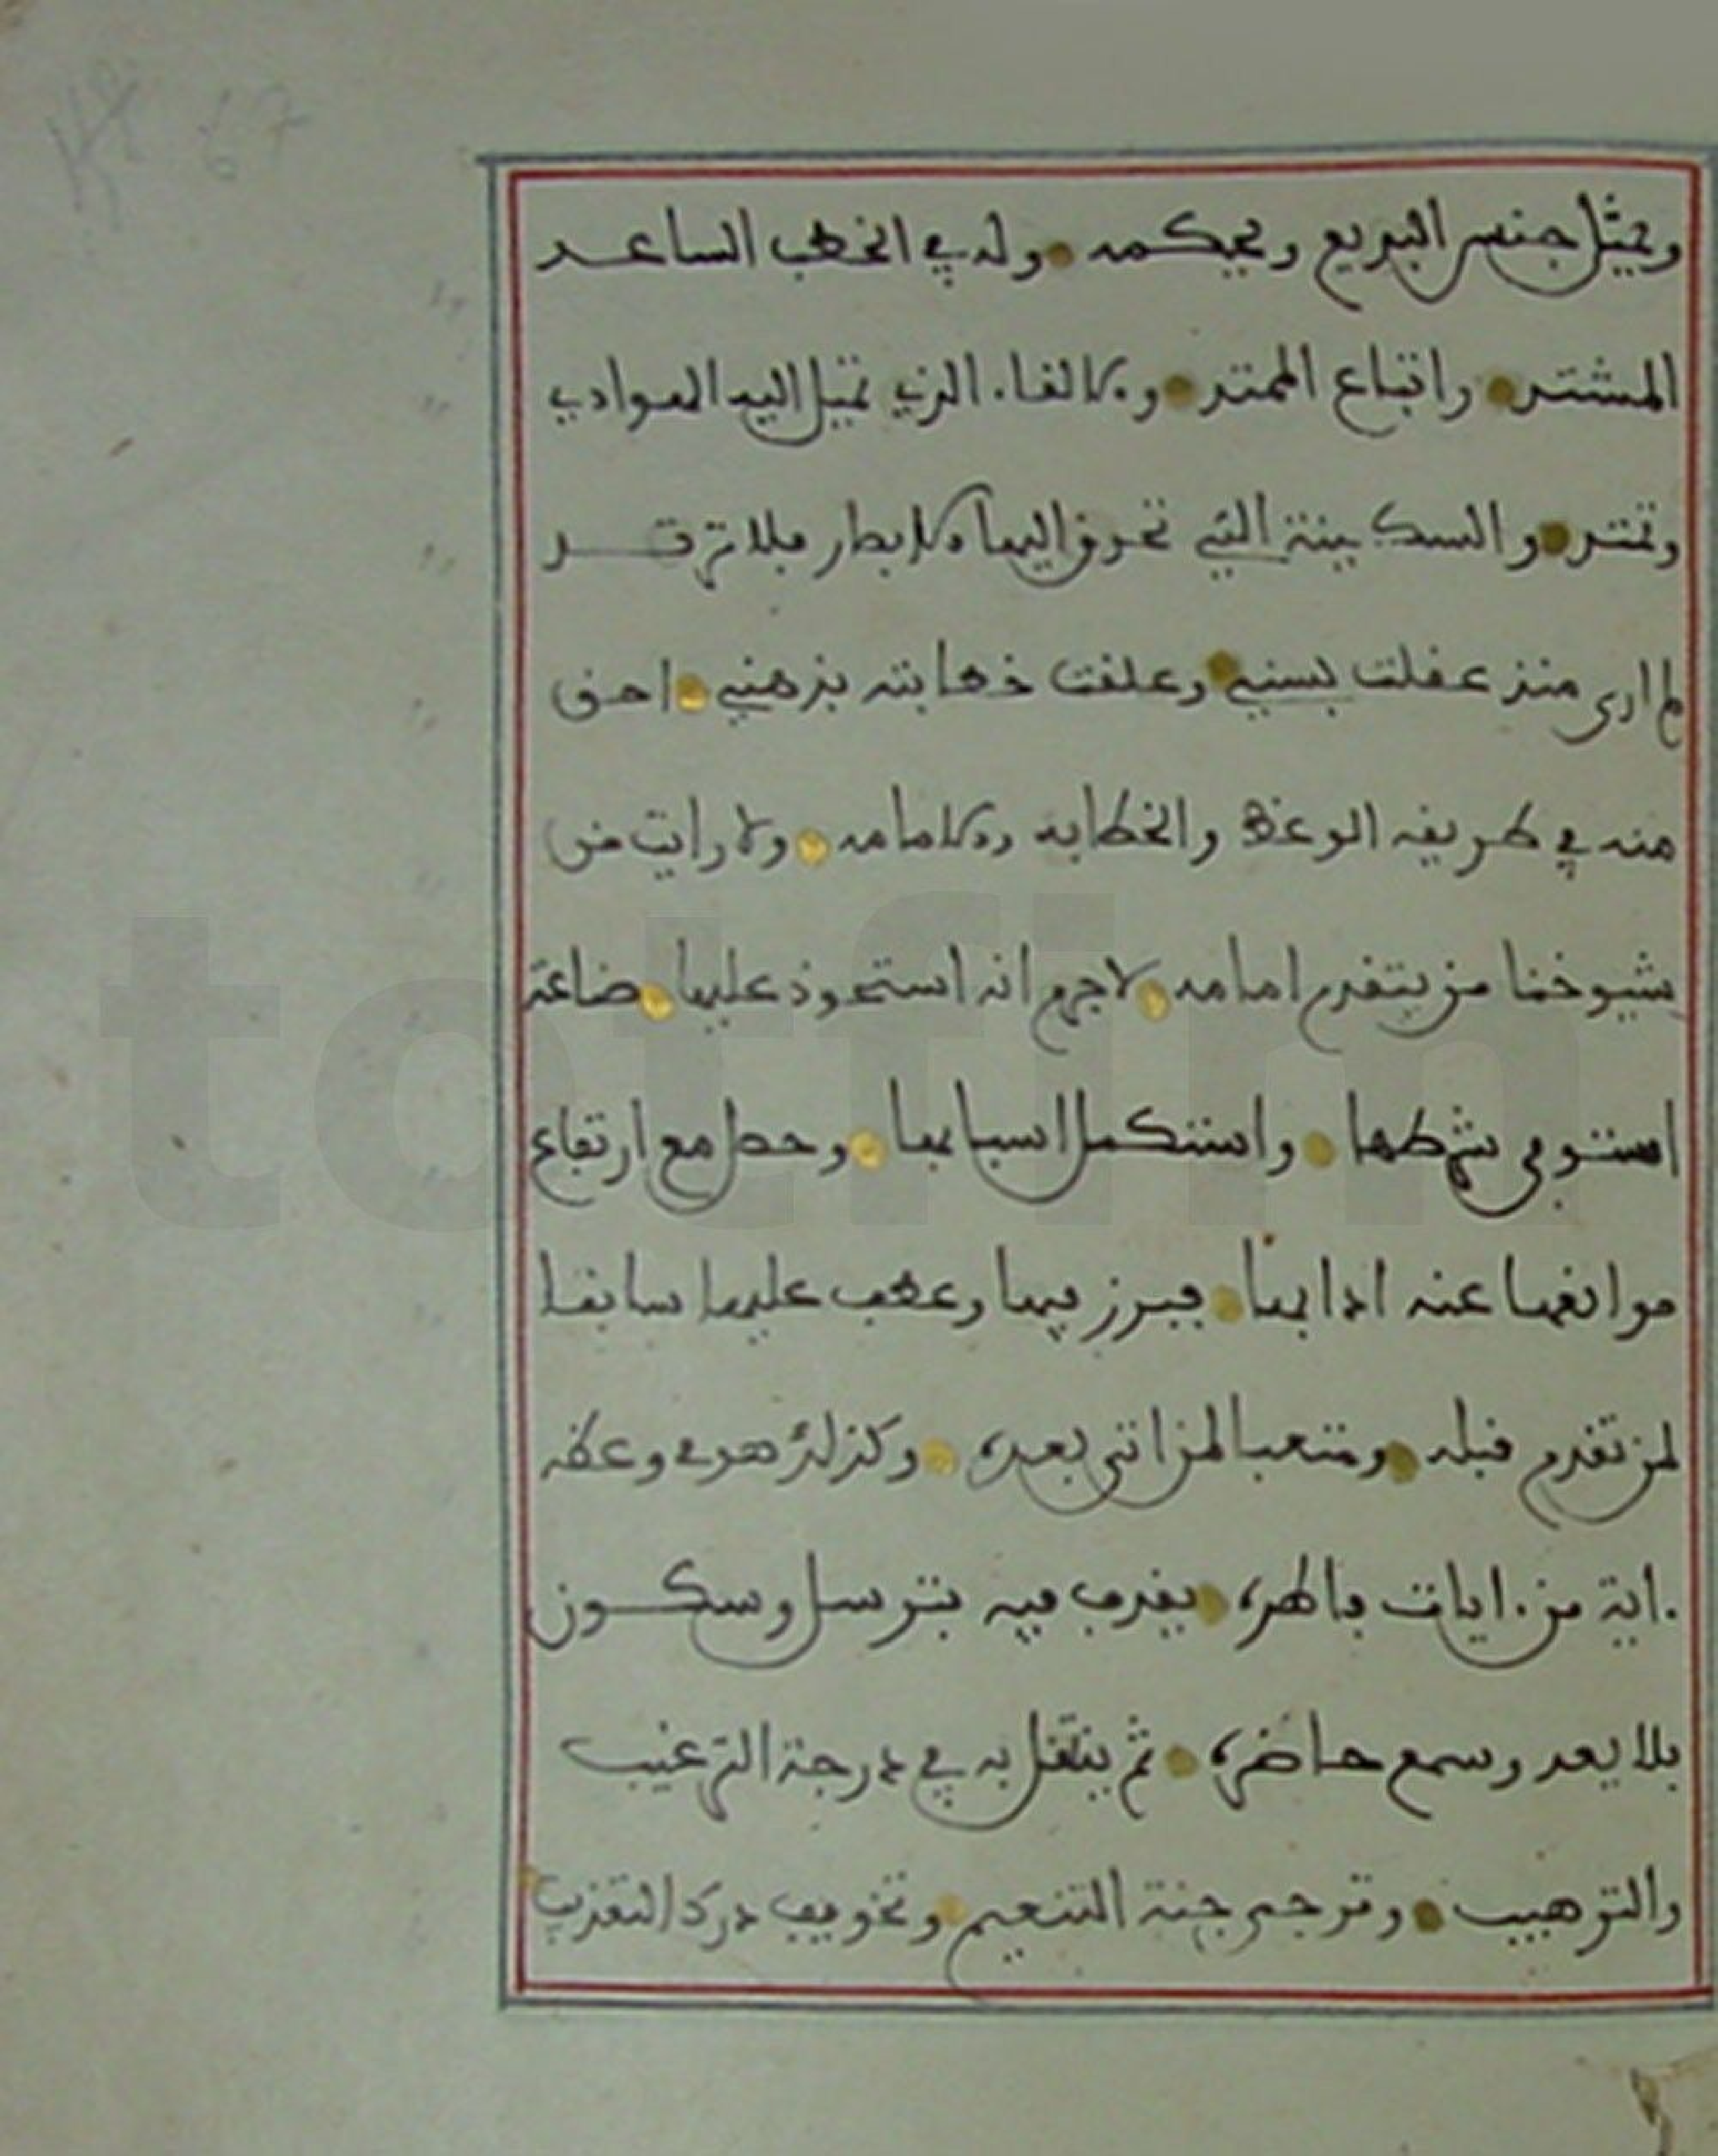 67
ويمثل جنس البديع ويحكمه ولد في الخطب الساعد
المشتد واتباع الممتد و الالقاء الذي تميل اليه الهوادي
وتمتد والسكينة التي تحدق اليها الابصار فلا ترتد
لم ارى منذ عقلت بسني وعلقت خطابته بذهني احق
منه في طريقه الوعظ والخطابه ولا امامه ولا رايت من
شيوخنا من يتقدم امامه لا جرم انه استحوذ عليها ضاعة
استوفى شرطها واستكمل اسبابها وحصل مع ارتفاع
موانعها عنه ادابها فبرز فيها وعقب عليها سابقا
لمن تقدم قبله ومتعبا لمن اتى بعده وكذلك هو في وعظه
ءاية من ءايات يقذف فيه بترسل وسكون
بلا يعد وسمع حاضره ثم ينتقل به في درجة الترغيب
والترهيب وترجي جنة التنعيم وتخويف درك التعذيب
totfim